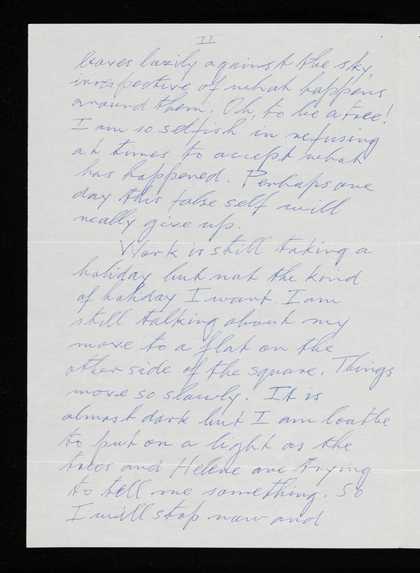 II
leaves lazily against the sky,
irrespective of what happens
around them. Oh, to be a tree!
I am so selfish in refusing
at times to accept what
has happened. Perhaps one
day this false self will
really give up.
Work is still taking a
holiday but not the kind
of holiday I want. I am
still talking about my
move to a flat on the
other side of the square. Things
move so slowly. It is
almost dark but I am loathe
to put on a light as the
trees and Helene are trying
to tell me something. So
I will stop now and